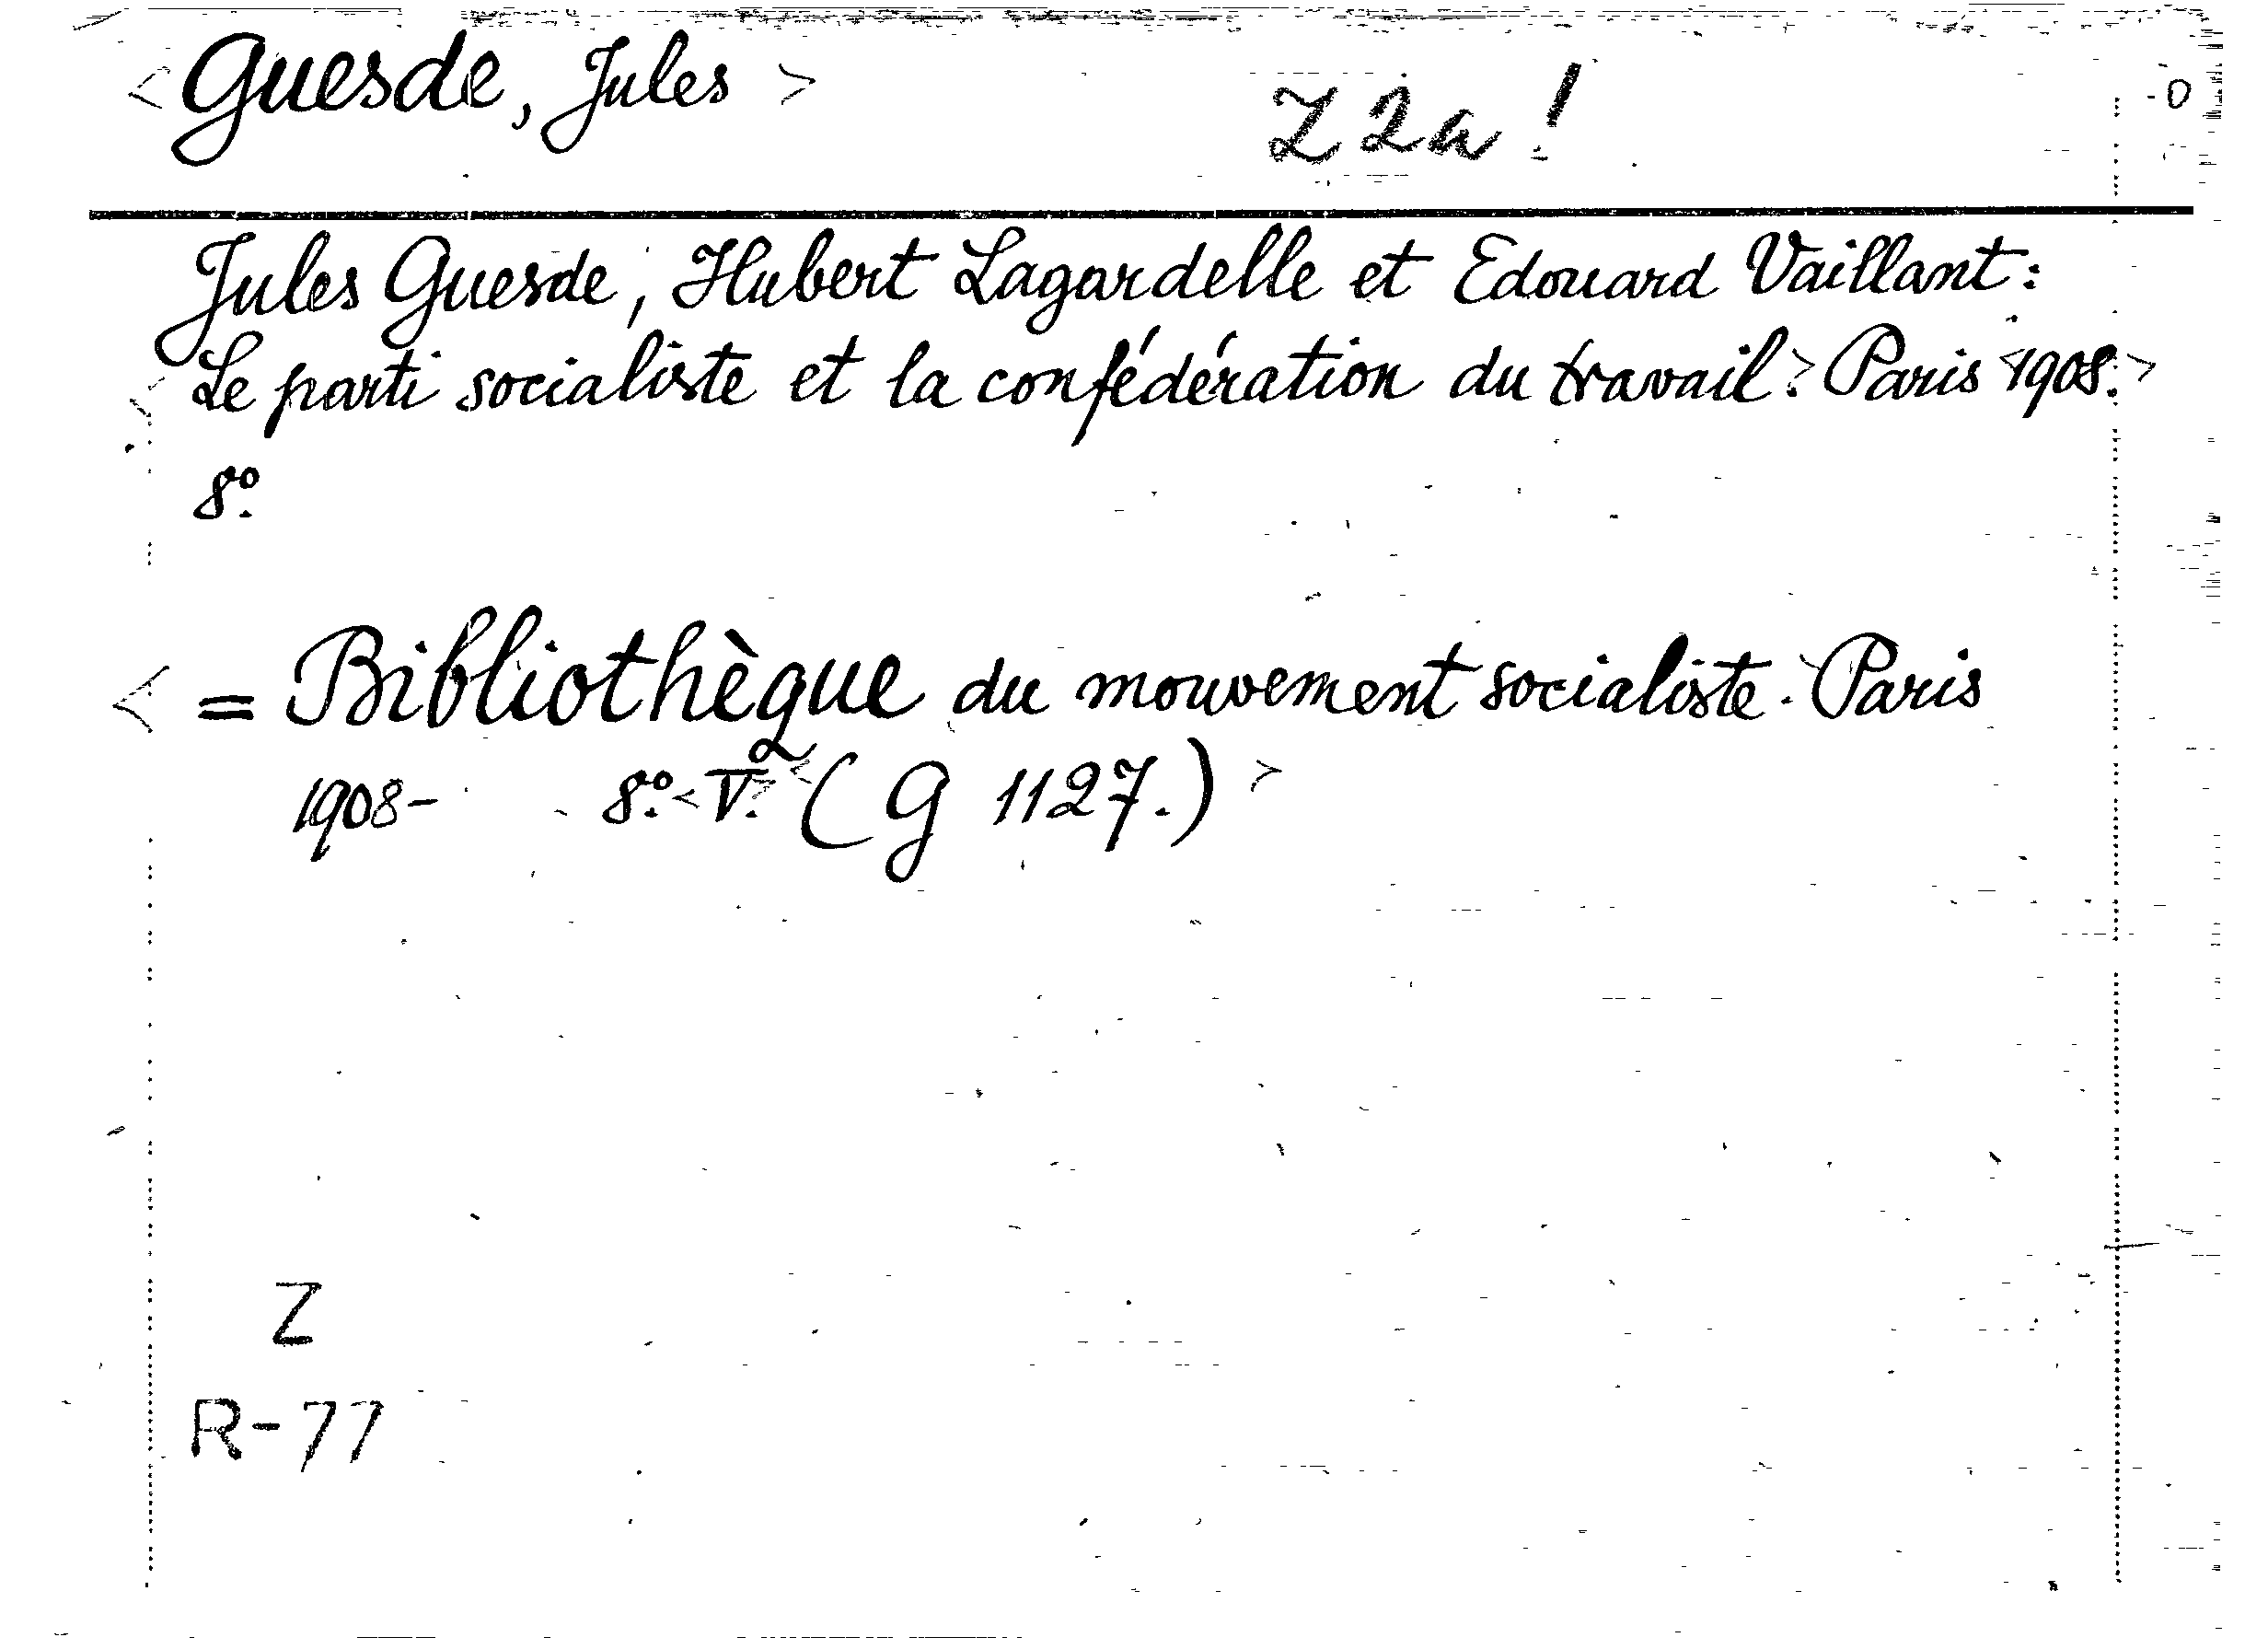 <Guesde, Jules> Z 2a! 0
Jules Guesde, Hubert Lagardelle et Edouard Vaillant:
Le parti socialiste et la confédération du travail. Paris <1908.>
8º.
< = Bibliothèque du mouvement socialiste. Paris
1908- 8º. <V. 2 (G 1127.)>
Z
R-77